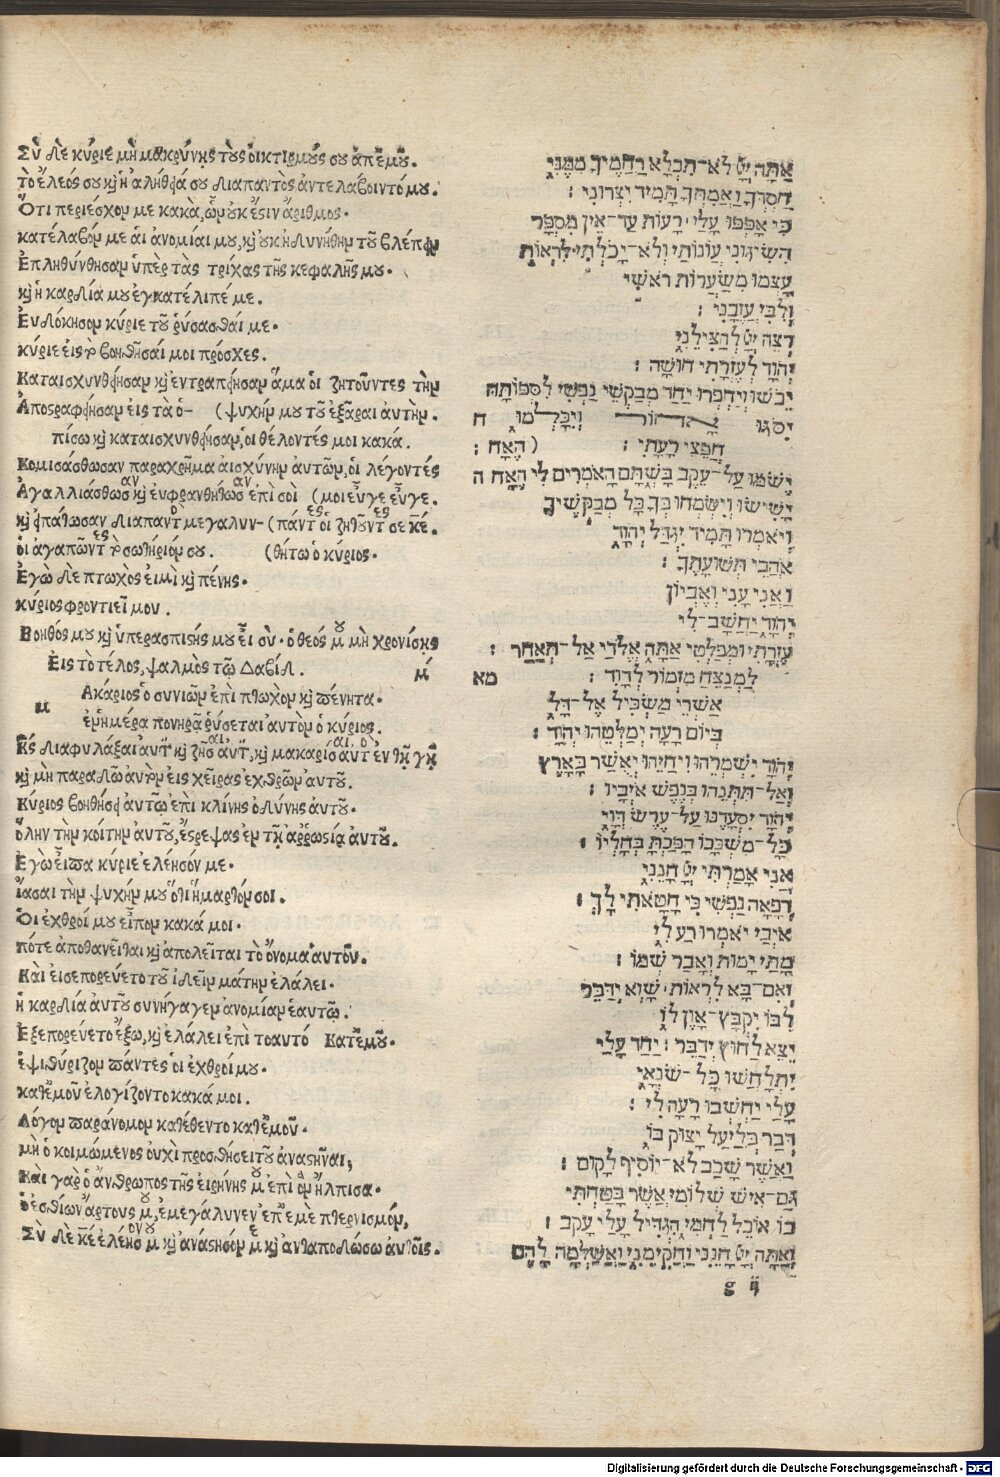 Σὺ δὲ κύριε μὴ μακρύνῃς τοὺς οἰκτιρμούς σου ἀπ' ἐμοῦ.
τὸ ἔλεός σου καὶ ἡ ἀλήθεια σου διαπαντὸς ἀντελάβοιντό μου.
Ὅτι περιέσχον με κακὰ, ὧν οὐκ ἔστιν ἄριθμος.
κατέλαβόν με ἁι ἀνομίαι μου, καὶ οὐκ ἠδυνήθην τοῦ βλέπειν
Ἐπληθύνθησαν ὑπὲρ τὰς τρίχας τῆς κεφαλῆς μου.
καὶ ἡ καρδία μου ἐγκατέλιπέ με.
Ἐυδόκησον κύριε τοῦ ῥύσασθαί με.
κύριε εἰς τὸ βοηθῆσαί μοι πρόσχες.
Καταισχυνθείησαν καὶ ἐντραπείησαν ἅμα ὁι ζητοῦντες τὴν
Ἀποστραφείησαν εἰς τὰ ὀ- (ψυχήν μου τοῦ ἐξᾶραι ἀυτήν.
πίσω καὶ καταισχυνθείησαν, ὁι θέλοντές μοι κακά.
Κομισάσθωσαν παραχρῆμα ἀισχύνην ἀυτῶν, ὁι λέγοντές
Ἀγαλλιάσθωσαν καὶ ἐυφρανθήτωσαν ἐπὶ σοὶ (μοι εὖγε εὖγε.
καὶ εἰπάτωσαν διαπαντὸς μεγαλυν- (πάντες ὁι ζητοῦντες σε κε.
ὁι ἀγαπῶντες τὸ σωτήριόν σου. (θήτω ὁ κύριος.
Ἐγὼ δὲ πτωχὸς εἰμὶ καὶ πένης.
κύριος φροντιεῖ μου.
Βοηθός μου καὶ ὑπερασπιστής μου εἶ σύ. ὁ θεός μου μὴ χρονίσῃς
Ἐις τὸ τέλος, ψαλμὸς τῷ Δαβίδ. μ
Μ Ακάριος ὁ συνιῶν ἐπὶ πτωχὸν καὶ πένητα.
ἐν ἡμέρα πονηρᾷ ῥύσεται ἀυτὸν ὁ κύριος.
Κς διαφυλάξαι ἀυτὸν καὶ ζῆσαι ἀυτὸν, καὶ μακαρίσαι ἀυτὸν ἐν τῇ γῇ
καὶ μὴ παραδῷ ἀυτὸν εἰς χεῖρας ἐχθρῶν ἀυτοῦ.
Κύριος βοηθήσει ἀυτῷ ἐπὶ κλίνης ὀδύνης ἀυτοῦ.
ὅλην τὴν κοίτην ἀυτοῦ, ἔστρεψας ἐν τῇ ἀῤῥωσίᾳ ἀυτοῦ.
Ἐγὼ εἶπα κύριε ἐλέησόν με.
ἴασαι τὴν ψυχήν μου ὅτι ἥμαρτόν σοι.
Ὁι ἐχθροί μου εἶπον κακά μοι.
πότε ἀποθανεῖται καὶ ἀπολεῖται τὸ ὄνομα ἀυτοῦ.
Καὶ εἰσεπορεύετο τοῦ ἰδεῖν μάτην ἐλάλει.
ἡ καρδία ἀυτοῦ συνήγαγεν ἀνομίαν ἑαυτῷ.
Ἐξεπορεύετο ἔξω, καὶ ἐλάλει ἐπὶ τοαυτό Κατ' ἐμοῦ.
ἐψιθύριζον πάντες ὁι ἐχθροί μου.
κατ' ἐμοῦ ἐλογίζοντο κακά μοι.
Λόγον παράνομον κατέθεντο κατ' ἐμοῦ.
μὴ ὁ κοιμώμενος ὀυχὶ προσθήσει τοῦ ἀναστῆναι;
Καὶ γαρ ὁ ἄνθρωπος τῆς εἰρήνης μου ἐπὶ ὃν ἤλπισα.
ὁ ἐσθίων ἄρτους μου, ἐμεγάλυνεν ἐπ' ἐμὲ πτερνισμόν,
Σὺ δὲ κε ἐλέησόν μου καὶ ἀνάστησόν με καὶ ἀνταποδώσω ἀυτοῖς.
אַתָּה יְיָ לֹא־תִכְלָא רַחֲמֶיךָ מִמֶּנִּי
חַסְדְּךָ וַאֲמִתְּךָ תָּמִיד יִצְּרוּנִי :
כִּי אָפְפוּ עָלַי רָעוֹת עַד־אֵין מִסְפָּר
הִשִּׂיגוּנִי עֲוֹנוֹתַי וְלֹא־יָכֹלְתִּי לִרְאוֹת
עָצְמוּ מִשַּׂעֲרוֹת רֹאשִׁי
וְלִבִּי עֲזָבָנִי :
רְצֵה יְיָ לְהַצִּילֵנִי
יְהוָֹה לְעֶזְרָתִי חוּשָׁה :
יֵבֹשׁוּ וְיַחְפְּרוּ יַחַד מְבַקְשֵׁי נַפְשִׁי לִסְפּוֹתָהּ
יִסֹּגוּ אָחוֹר וְיִכָּלְמוּ ח
חֲפֵצֵי רָעָתִי : (הֶאָח :
יָשֹׁמּוּ עַל־עֵקֶב בָּשְׁתָּם הָאֹמְרִים לִי הֶאָח ה
יָשִׂישׂוּ וְיִשְׂמְחוּ בְּךָ כָּל מְבַקְשֶׁיךָ
וְיֹאמְרוּ תָמִיד יִגְדַּל יְהוָֹה
אֹהֲבֵי תְּשׁוּעָתֶךָ :
וַאֲנִי עָנִי וְאֶבְיוֹן
יְהוָֹה יַחֲשָׁב־לִי
עֶזְרָתִי וּמְפַלְטִי אַתָּה אֱלֹדַי אַל־תְּאַחַר :
לַמְנַצֵּחַ מִזְמוֹר לְדָוִד : מא
אַשְׁרֵי מַשְׂכִּיל אֶל־דָּל
בְּיוֹם רָעָה יְמַלְּטֵהוּ יְהוָֹה :
יְהוָֹה יִשְׁמְרֵהוּ וִיחַיֵּהוּ יְאֻשַּׁר בָּאָרֶץ
וְאַל־תִּתְּנֵהוּ בְּנֶפֶשׁ אֹיְבָיו :
יְהוָֹה יִסְעָדֶנּוּ עַל־עֶרֶשׂ דְּוָי
כָּל־מִשְׁכָּבוֹ הָפַכְתָּ בְחָלְיוֹ :
אֲנִי אָמַרְתִּי יְיָ חָנֵּנִי
רְפָאָה נַפְשִׁי כִּי חָטָאתִי לָךְ :
אוֹיְבַי יֹאמְרוּ רַע לִי
מָתַי יָמוּת וְאָבַד שְׁמוֹ :
וְאִם־בָּא לִרְאוֹת שָׁוְא יְדַבֵּר
לִבּוֹ יִקְבָּץ־אָוֶן לוֹ
יֵצֵא לַחוּץ יְדַבֵּר : יַחַד עָלַי
יִתְלַחֲשׁוּ כָּל־שֹׂנְאָי
עָלַי יַחְשְׁבוּ רָעָה לִי :
דְּבַר בְּלִיַּעַל יָצוּק בּוֹ
וַאֲשֶׁר שָׁכַב לֹא־יוֹסִיף לָקוּם :
גַּם־אִישׁ שְׁלוֹמִי אֲשֶׁר בָּטַחְתִּי
בוֹ אוֹכֵל לַחְמִי הִגְדִּיל עָלַי עָקֵב :
וְאַתָּה יְיָ חָנֵּנִי וַהֲקִימֵנִי וַאֲשַׁלְּמָה לָהֶם
g ij
Digitalisierung gefördert durch die Deutsche Forschungsgemeinschaft - DFG